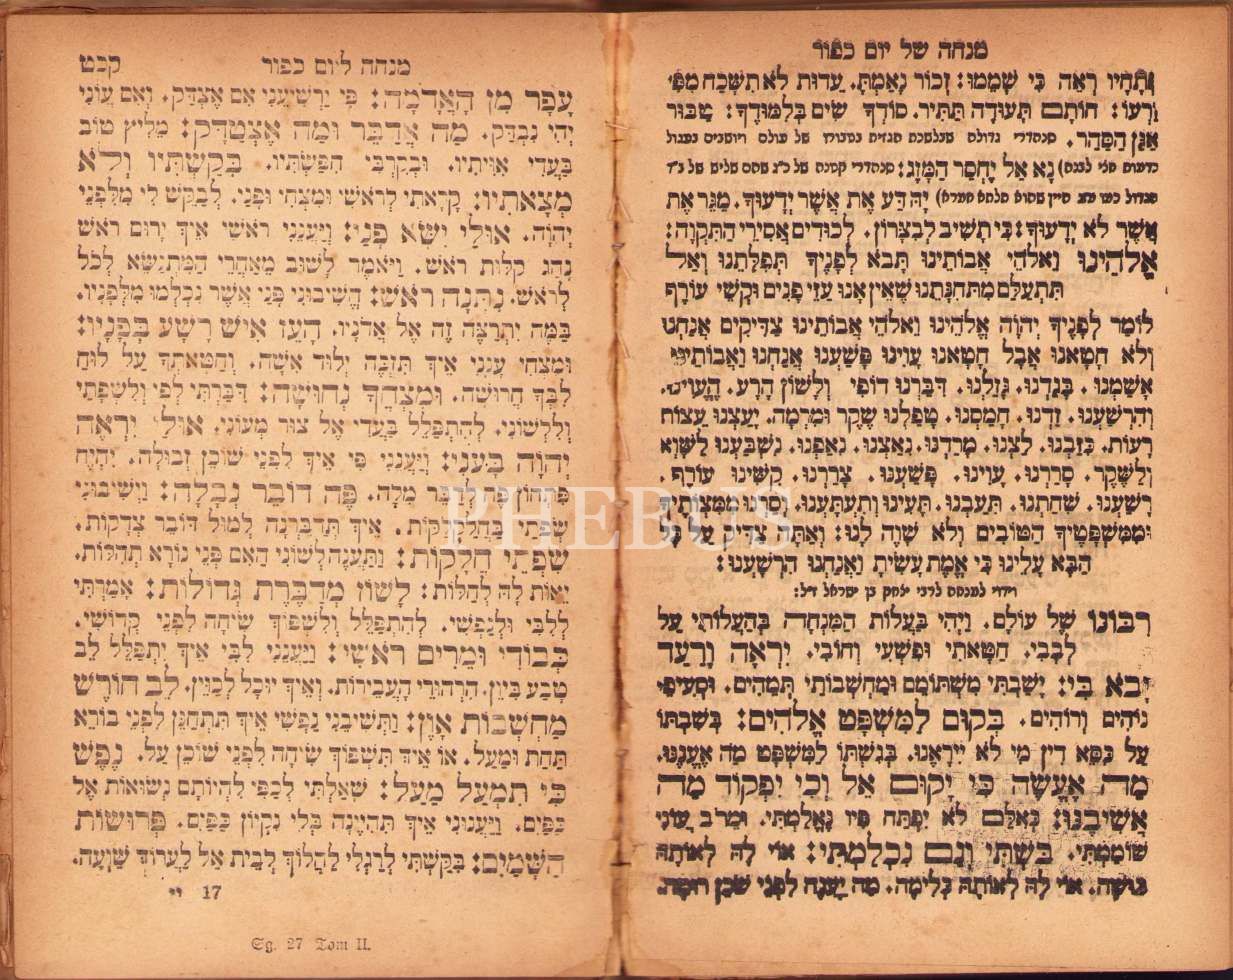 מנחה של יום כפור
וּתְחָיו רְאֵה כִּי שָׁמְמוּ: זְכוֹר נְאֻמְתָּ. עֵדוּת לֹא תִשָּׁכַח מִפִּי
זַרְעוֹ: חוֹתַם תְּעוּדָה תַּתִּיר. סוֹדְךָ שִׂים בְּלִמּוּדֶךָ: טַבּוּר
אַגַּן הַסַּהַר.
נָא אַל יֶחְסַר הַמָּזֶג:
יָהּ דַּע אֶת אֲשֶׁר יְדָעוּךָ. מַגֵּר אֶת
אֲשֶׁר לֹא יְדָעוּךָ: כִּי תָשִׁיב לְבִצָּרוֹן. לְכוּדִים אֲסִירֵי הַתִּקְוָה:
אֱלֹהֵינוּ וֵאלֹהֵי אֲבוֹתֵינוּ תָּבֹא לְפָנֶיךָ תְּפִלָּתֵנוּ וְאַל
תִּתְעַלַּם מִתְּחִנָּתֵנוּ שֶׁאֵין אָנוּ עַזֵּי פָנִים וּקְשֵׁי עוֹרֶף
לוֹמַר לְפָנֶיךָ יְהוָֹה אֱלֹהֵינוּ וֵאלֹהֵי אֲבוֹתֵינוּ צַדִּיקִים אֲנַחְנוּ
וְלֹא חָטָאנוּ אֲבָל חָטָאנוּ עָוִינוּ פָּשַׁעְנוּ אֲנַחְנוּ וַאֲבוֹתֵינוּ:
אָשַׁמְנוּ. בָּגַדְנוּ. גָּזַלְנוּ. דִּבַּרְנוּ דוֹפִי וְלָשׁוֹן הָרָע. הֶעֱוִינוּ.
וְהִרְשַׁעְנוּ. זַדְנוּ. חָמַסְנוּ. טָפַלְנוּ שֶׁקֶר וּמִרְמָה. יָעַצְנוּ עֵצוֹת
רָעוֹת. כִּזַּבְנוּ. לַצְנוּ. מָרַדְנוּ. נִאַצְנוּ. נִאַפְנוּ. נִשְׁבַּעְנוּ לַשָּׁוְא
וְלַשֶּׁקֶר. סָרַרְנוּ. עָוִינוּ. פָּשַׁעְנוּ. צָרַרְנוּ. קִשִּׁינוּ עוֹרֶף.
רָשַׁעְנוּ. שִׁחַתְנוּ. תִּעַבְנוּ. תָּעִינוּ וְתִעְתָּעְנוּ. וְסַרְנוּ מִמִּצְוֹתֶיךָ
וּמִמִּשְׁפָּטֶיךָ הַטּוֹבִים וְלֹא שָׁוָה לָנוּ: וְאַתָּה צַדִּיק עַל כָּל
הַבָּא עָלֵינוּ כִּי אֱמֶת עָשִׂיתָ וַאֲנַחְנוּ הִרְשָׁעְנוּ:
וידוי למנחה לרבי יצחק בן ישראל ז״ל:
רִבּוֹנוֹ שֶׁל עוֹלָם. וַיְהִי בַּעֲלוֹת הַמִּנְחָה בְּהַעֲלוֹתִי עַל
לְבָבִי. חַטָּאתִי וּפִשְׁעִי וְחוֹבִי. יִרְאָה וָרַעַד
יָבֹא בִי: יָשַׁבְתִּי מִשְׁתּוֹמֵם וּמַחְשְׁבוֹתַי תְּמֵהִים. וּסְעִיפַי
נוֹהִים וְרוֹהִים. בְּקוּם לַמִּשְׁפָּט אֱלֹהִים: בְּשִׁבְתּוֹ
עַל כִּסֵּא דִין מִי לֹא יִירָאֶנּוּ. בְּגִשְׁתּוֹ לַמִּשְׁפָּט מָה אֶעֱנֶנּוּ.
מָה אֶעֱשֶׂה כִּי יָקוּם אֵל וְכִי יִפְקוֹד מָה
אֲשִׁיבֶנּוּ: כְּאִלֵּם לֹא יִפְתַּח פִּיו נֶאֱלַמְתִּי. וּמֵרֹב עֲוֹנִי
שׁוֹמַמְתִּי. בֹּשְׁתִּי וְגַם נִכְלַמְתִּי: אוֹי לָהּ לְאוֹתָהּ
בּוּשָׁה. אוֹי לָהּ לְאוֹתָהּ כְּלִימָה. מַה יַּעֲנֶה לִפְנֵי שׁוֹכֵן רוּמָה.
מנחה ליום כפור קכט
עָפָר מִן הָאֲדָמָה: פִּי יַרְשִׁיעֵנִי אִם אֶצְדָּק. וְאִם עֲוֹנִי
יְהִי נִבְדָּק. מָה אֲדַבֵּר וּמַה אֶצְטַדָּק: מֵלִיץ טוֹב
בַּעֲדִי אִוִּיתִיו. וּבְקִרְבִּי חִפַּשְׂתִּיו. בִּקַּשְׁתִּיו וְלֹא
מְצָאתִיו: קָרָאתִי לְרֹאשִׁי וּמִצְחִי וּפָנַי. לְבַקֵּשׁ לִי מִלִּפְנֵי
יְהוָֹה. אוּלַי יִשָּׂא פָנָי: וַיַּעֲנֵנִי רֹאשִׁי אֵיךְ יָרוּם רֹאשׁ
נָהַג קַלּוּת רֹאשׁ. וַיֹּאמֶר לָשׁוּב מֵאַחֲרֵי הַמִּתְנַשֵּׂא לְכֹל
לְרֹאשׁ. נִתְּנָה רֹאשׁ: הֱשִׁיבוּנִי פָנַי אֲשֶׁר נִכְלְמוּ מִלְּפָנָיו.
בַּמֶּה יִתְרַצֶּה זֶה אֶל אֲדֹנָיו. הֵעֵז אִישׁ רָשָׁע בְּפָנָיו:
וּמִצְחִי עֲנָנִי אֵיךְ תִּזְכֶּה יְלוּד אִשָּׁה. וְחַטָּאתְךָ עַל לוּחַ
לִבְּךָ חֲרוּשָׁה. וּמִצְחֲךָ נְחוּשָׁה: דִּבַּרְתִּי לְפִי וְלִשְׂפָתַי
וְלִלְשׁוֹנִי. לְהִתְפַּלֵּל בַּעֲדִי אֶל צוּר מְעוֹנִי. אוּלַי יִרְאֶה
יְהוָֹה בְּעָנְיִי: וַיַּעֲנֵנִי פִּי אֵיךְ לִפְנֵי שׁוֹכֵן זְבוּלָה. יִהְיֶה
פִּתְחוֹן פִּי לְדַבֵּר מִלָּה. פֶּה דוֹבֵר נְבָלָה: וַיְשִׁיבוּנִי
שִׂפְתֵי בַּחֲלַקְלַקּוֹת. אֵיךְ תְּדַבֵּרְנָה לְמוּל דּוֹבֵר צְדָקוֹת.
שִׂפְתֵי חֲלָקוֹת: וַתַּעֲנֶה לְשׁוֹנִי הַאִם פְּנֵי נוֹרָא תְהִלּוֹת.
יָאוּת לָהּ לְחַלּוֹת: לָשׁוֹן מְדַבֶּרֶת גְּדוֹלוֹת: אָמַרְתִּי
לְלִבִּי וּלְנַפְשִׁי. לְהִתְפַּלֵּל וְלִשְׁפּוֹךְ שִׂיחָה לִפְנֵי קְדוֹשִׁי.
כְּבוֹדִי וּמֵרִים רֹאשִׁי: וַיַּעֲנֵנִי לִבִּי אֵיךְ יִתְפַּלֵּל לֵב
טָבַע בִּיוֵן. הִרְהוּרֵי הָעֲבֵירוֹת. וְאֵיךְ יוּכַל לְכַוֵּין. לֵב חוֹרֵשׁ
מַחְשְׁבוֹת אָוֶן: וַתְּשִׁיבֵנִי נַפְשִׁי אֵיךְ תִּתְחַנֵּן לִפְנֵי בוֹרֵא
תַּחַת וּמַעַל. אוֹ אֵיךְ תִּשְׁפּוֹךְ שִׂיחָה לִפְנֵי שׁוֹכֵן עַל. נֶפֶשׁ
כִּי תִמְעַל מַעַל: שָׁאַלְתִּי לְכַפַּי לִהְיוֹתָם נְשׂוּאוֹת אֶל
כַּפַּיִם. וַיַּעֲנוּנִי אֵיךְ תִּהְיֶינָה בְּלִי נִקְיוֹן כַּפַּיִם. פְּרוּשׂוֹת
הַשָּׁמַיִם: בִּקַּשְׁתִּי לְרַגְלַי לַהֲלוֹךְ לְבֵית אֵל לַעֲרוֹךְ שַׁוְעָה.
17 יי
Sg. 27 Tom II.
PHEBUS